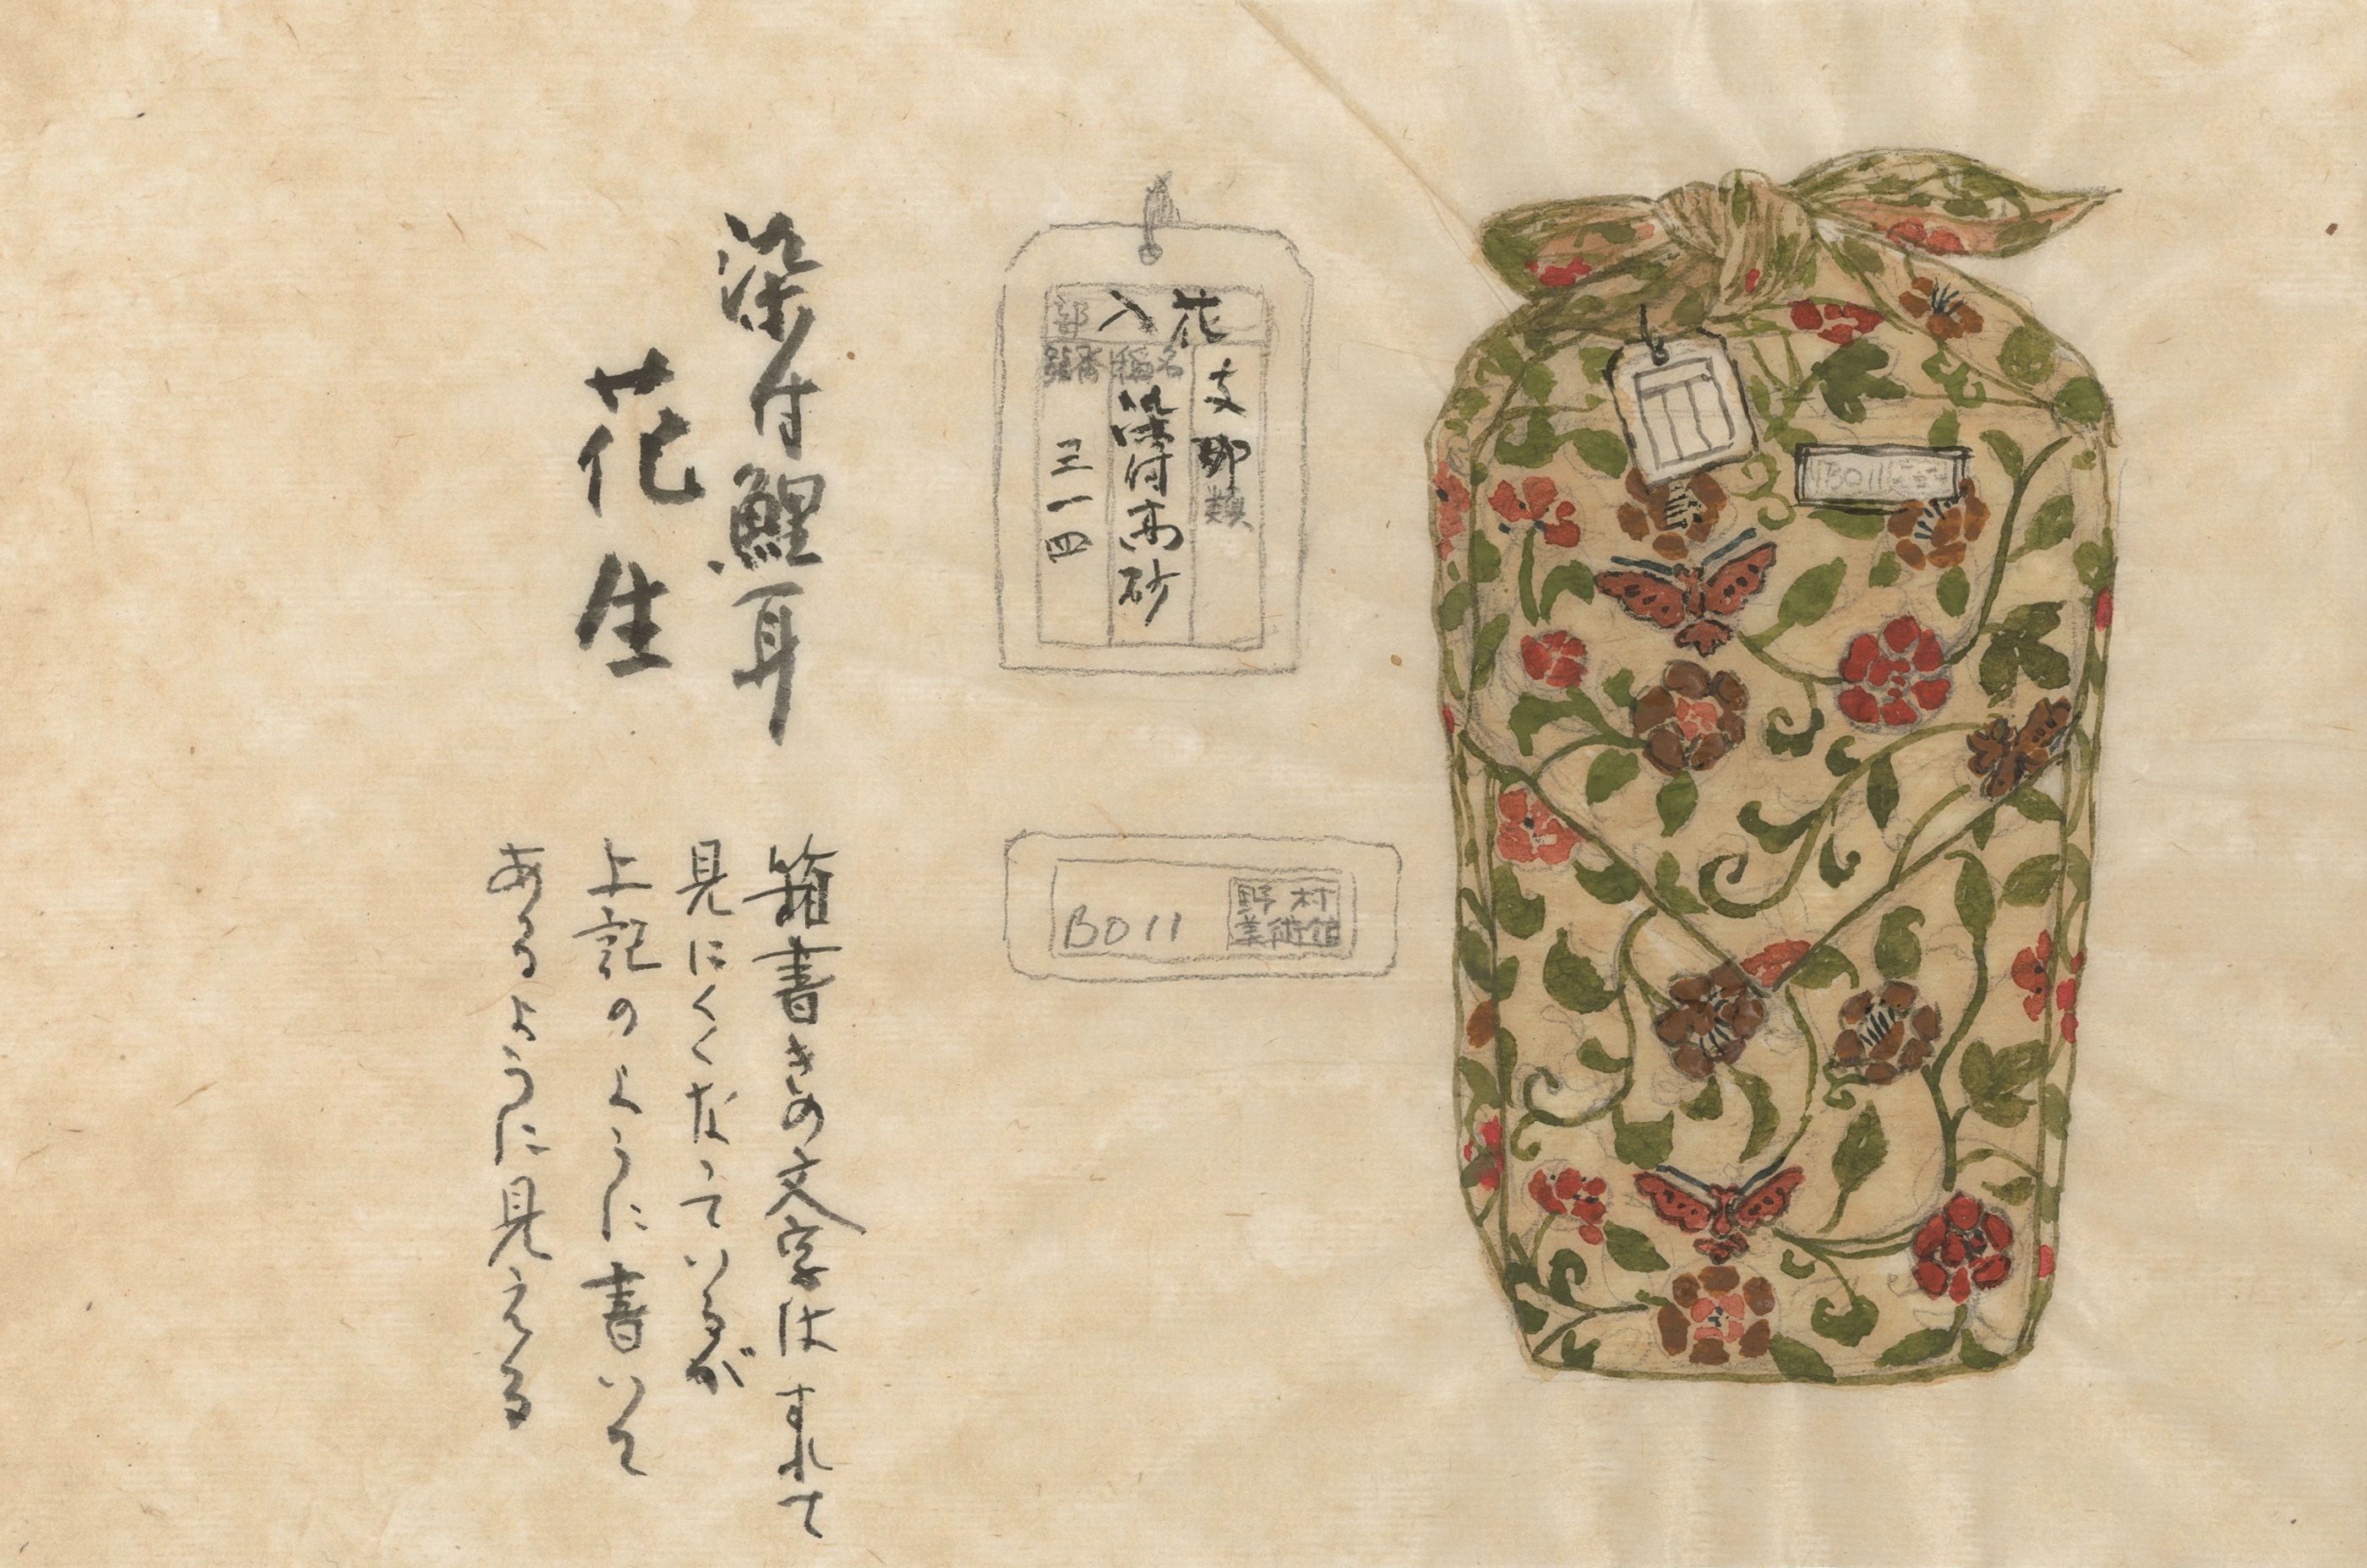 花入部
支那類
名稱
染付高砂
番號
三一四
B011
野村
美術館
染付鯉耳
花生
箱書きの文字はすれて
見にくくなっているが
上記のように書いて
あるように見える
B011